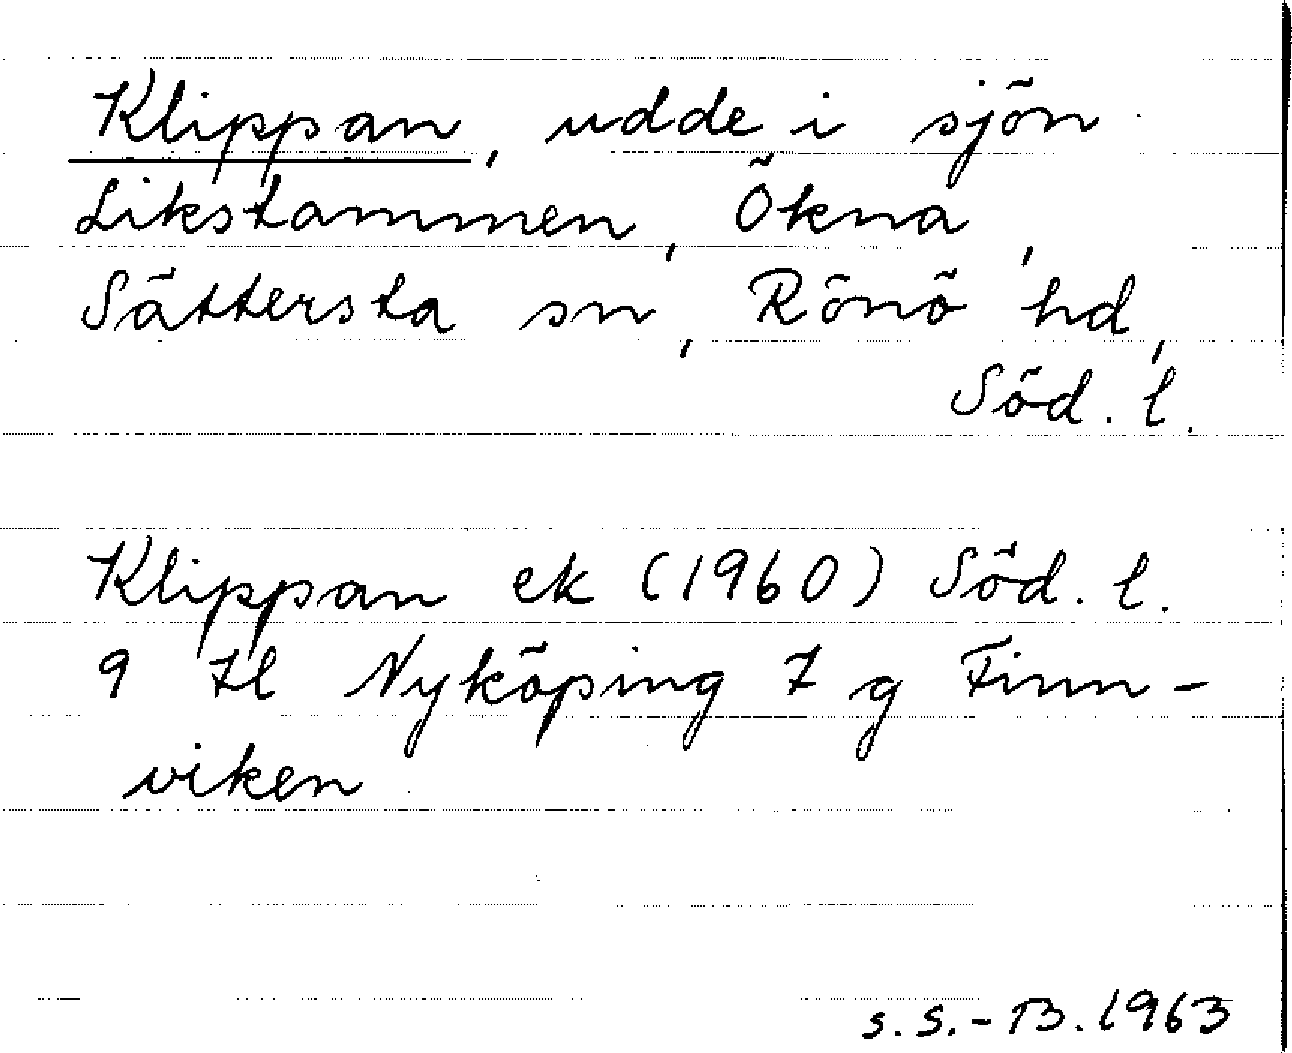 Klippan, udde i sjön
Likstammen, Ökna,
Sättersta sn, Rönö hd,
Söd. l.
Klippan ek (1960) Söd. l.
9 H l Nyköping 7 g Finn-
viken
S.S.-B. 1963